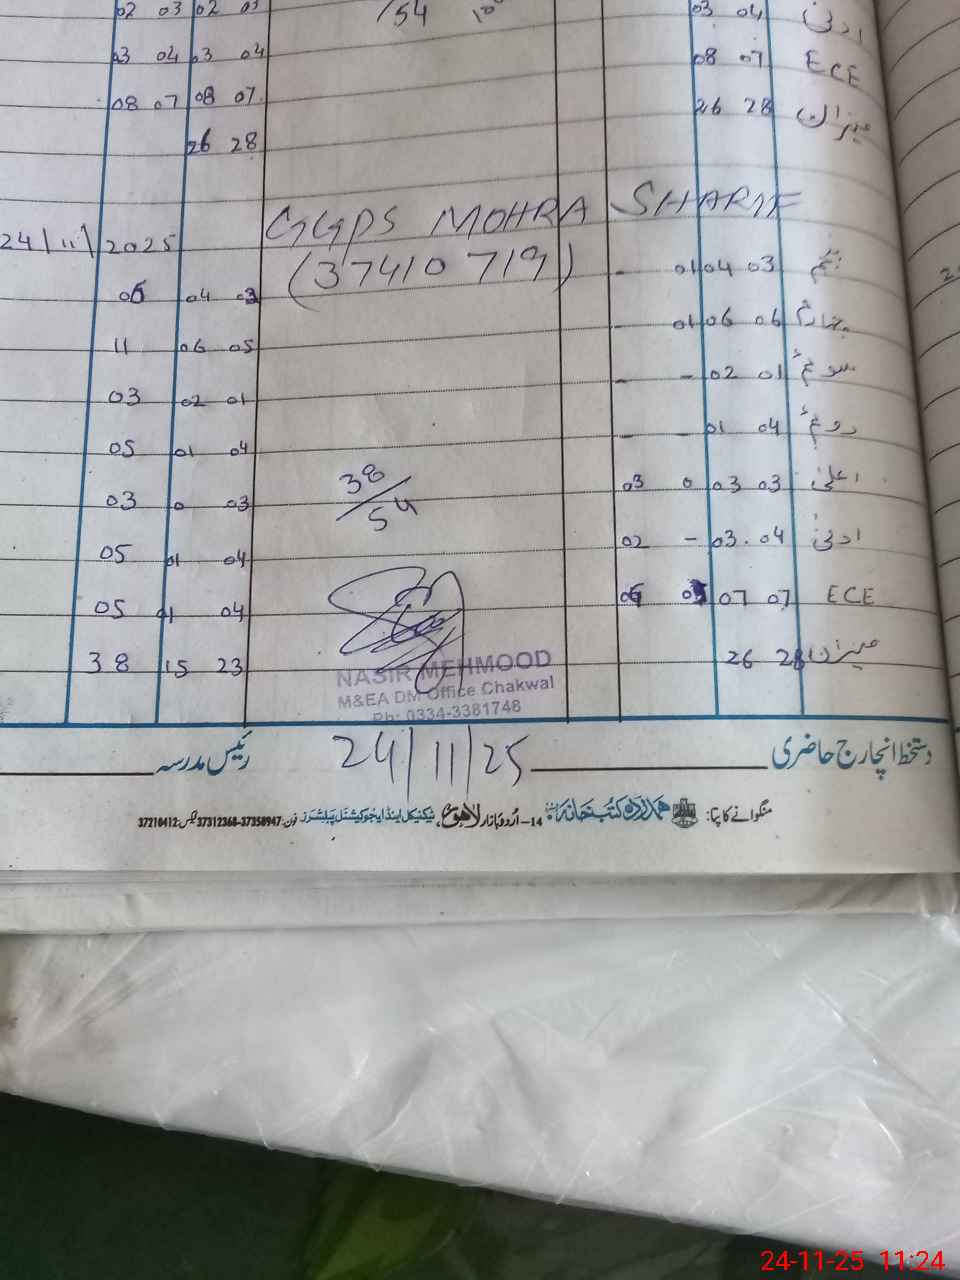 02 03 02 03 /54 03 04 ادنیٰ
03 04 03 04 08 07 ECE
08 07 08 07 26 28 میزان
26 28
GGPS MOHRA SHARIF
24/11/2025
(37410719)
06 04 03 - 01 04 03 پنجم
11 06 05 01 06 06 چہارم
03 02 01 - - 02 01 سوئم
05 01 04 - - 01 04 دوئم
03 0 03 38/54 03 0 03 03 اعلیٰ
05 01 04 02 - 03 04 ادنیٰ
05 01 04 07 07 ECE
38 15 23 26 28 میزان
NASIR MEHMOOD
M&EA DM Office Chakwal
Ph: 0334-3381748
دستخط انچارج حاضری 24/11/25 رئیس مدرسہ
منگوانے کا پتا: ہمدرد کتب خانہ 14-اُردو بازار لاہور، ٹیکنیکل اینڈ ایجوکیشنل پبلشرز فون: 37358947-37312368 فیکس: 37210412
24-11-25 11:24